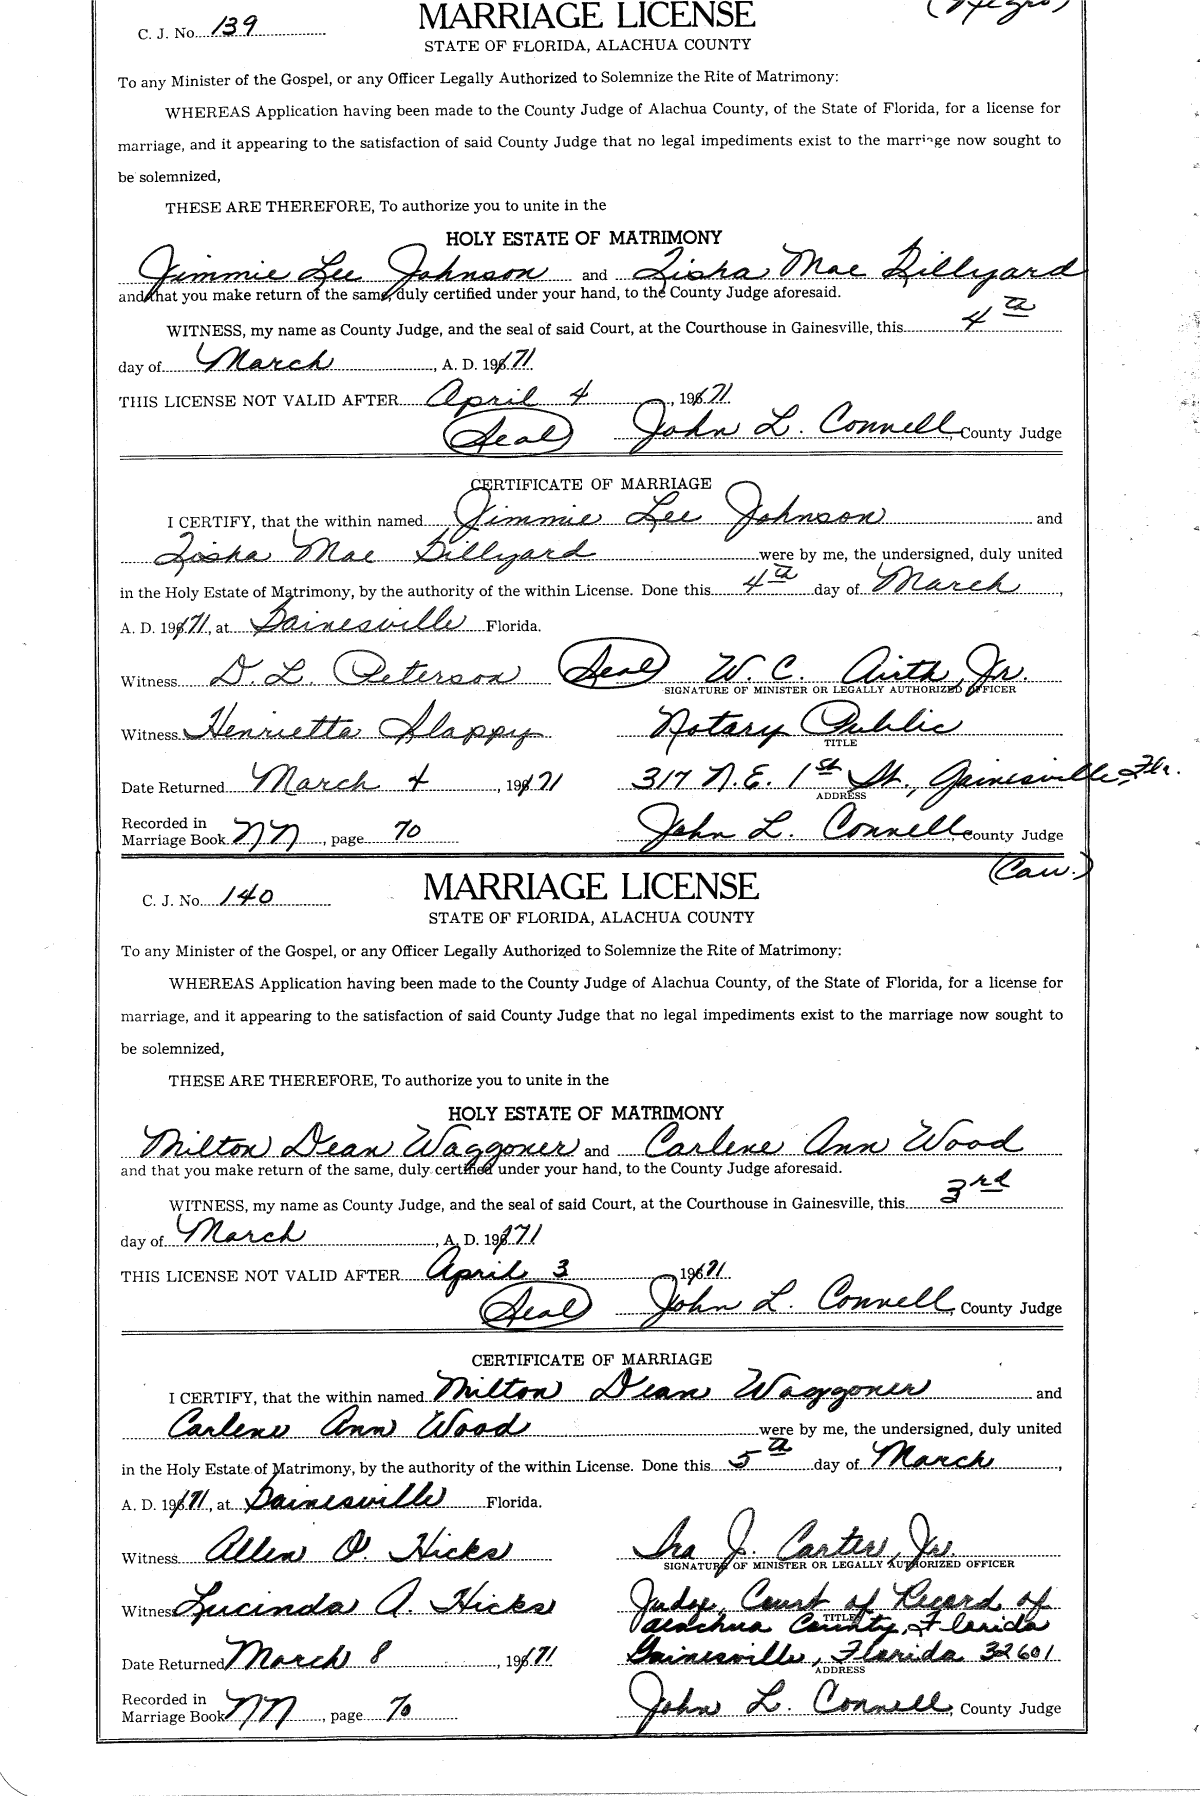 (Negro)
C. J. No. 139
MARRIAGE LICENSE
STATE OF FLORIDA, ALACHUA COUNTY
To any Minister of the Gospel, or any Officer Legally Authorized to Solemnize the Rite of Matrimony:
WHEREAS Application having been made to the County Judge of Alachua County, of the State of Florida, for a license for
marriage, and it appearing to the satisfaction of said County Judge that no legal impediments exist to the marriage now sought to
be solemnized,
THESE ARE THEREFORE, To authorize you to unite in the
HOLY ESTATE OF MATRIMONY
Jimmie Lee Johnson and Zisha Mae Dillyard
and that you make return of the same, duly certified under your hand, to the County Judge aforesaid.
WITNESS, my name as County Judge, and the seal of said Court, at the Courthouse in Gainesville, this 4th
day of March, A. D. 19671.
THIS LICENSE NOT VALID AFTER April 4, 19671.
(Seal) John L. Connell, County Judge
CERTIFICATE OF MARRIAGE
I CERTIFY, that the within named Jimmie Lee Johnson and
Zisha Mae Dillyard were by me, the undersigned, duly united
in the Holy Estate of Matrimony, by the authority of the within License. Done this 4th day of March,
A. D. 19671, at Gainesville Florida.
Witness D. L. Peterson (Seal) W. C. Airth, Jr.
SIGNATURE OF MINISTER OR LEGALLY AUTHORIZED OFFICER
Witness Henrietta Slappy Notary Public
TITLE
Date Returned March 4, 19671 317 N.E. 1st St., Gainesville, Fla.
ADDRESS
Recorded in
Marriage Book NN, page 70 John L. Connell, County Judge
(Cau.)
C. J. No. 140
MARRIAGE LICENSE
STATE OF FLORIDA, ALACHUA COUNTY
To any Minister of the Gospel, or any Officer Legally Authorized to Solemnize the Rite of Matrimony:
WHEREAS Application having been made to the County Judge of Alachua County, of the State of Florida, for a license for
marriage, and it appearing to the satisfaction of said County Judge that no legal impediments exist to the marriage now sought to
be solemnized,
THESE ARE THEREFORE, To authorize you to unite in the
HOLY ESTATE OF MATRIMONY
Milton Dean Waggoner and Carlene Ann Wood
and that you make return of the same, duly certified under your hand, to the County Judge aforesaid.
WITNESS, my name as County Judge, and the seal of said Court, at the Courthouse in Gainesville, this 3rd
day of March, A. D. 19671
THIS LICENSE NOT VALID AFTER April 3 19671.
(Seal) John L. Connell, County Judge
CERTIFICATE OF MARRIAGE
I CERTIFY, that the within named Milton Dean Waggoner and
Carlene Ann Wood were by me, the undersigned, duly united
in the Holy Estate of Matrimony, by the authority of the within License. Done this 5th day of March,
A. D. 19671, at Gainesville Florida.
Witness Allen O. Hicks Ira J. Carter, Jr.
SIGNATURE OF MINISTER OR LEGALLY AUTHORIZED OFFICER
Witness Lucinda A. Hicks Judge, Court of Record of
Alachua County, Florida
TITLE
Date Returned March 8, 19671 Gainesville, Florida 32601
ADDRESS
Recorded in
Marriage Book NN, page 70 John L. Connell, County Judge